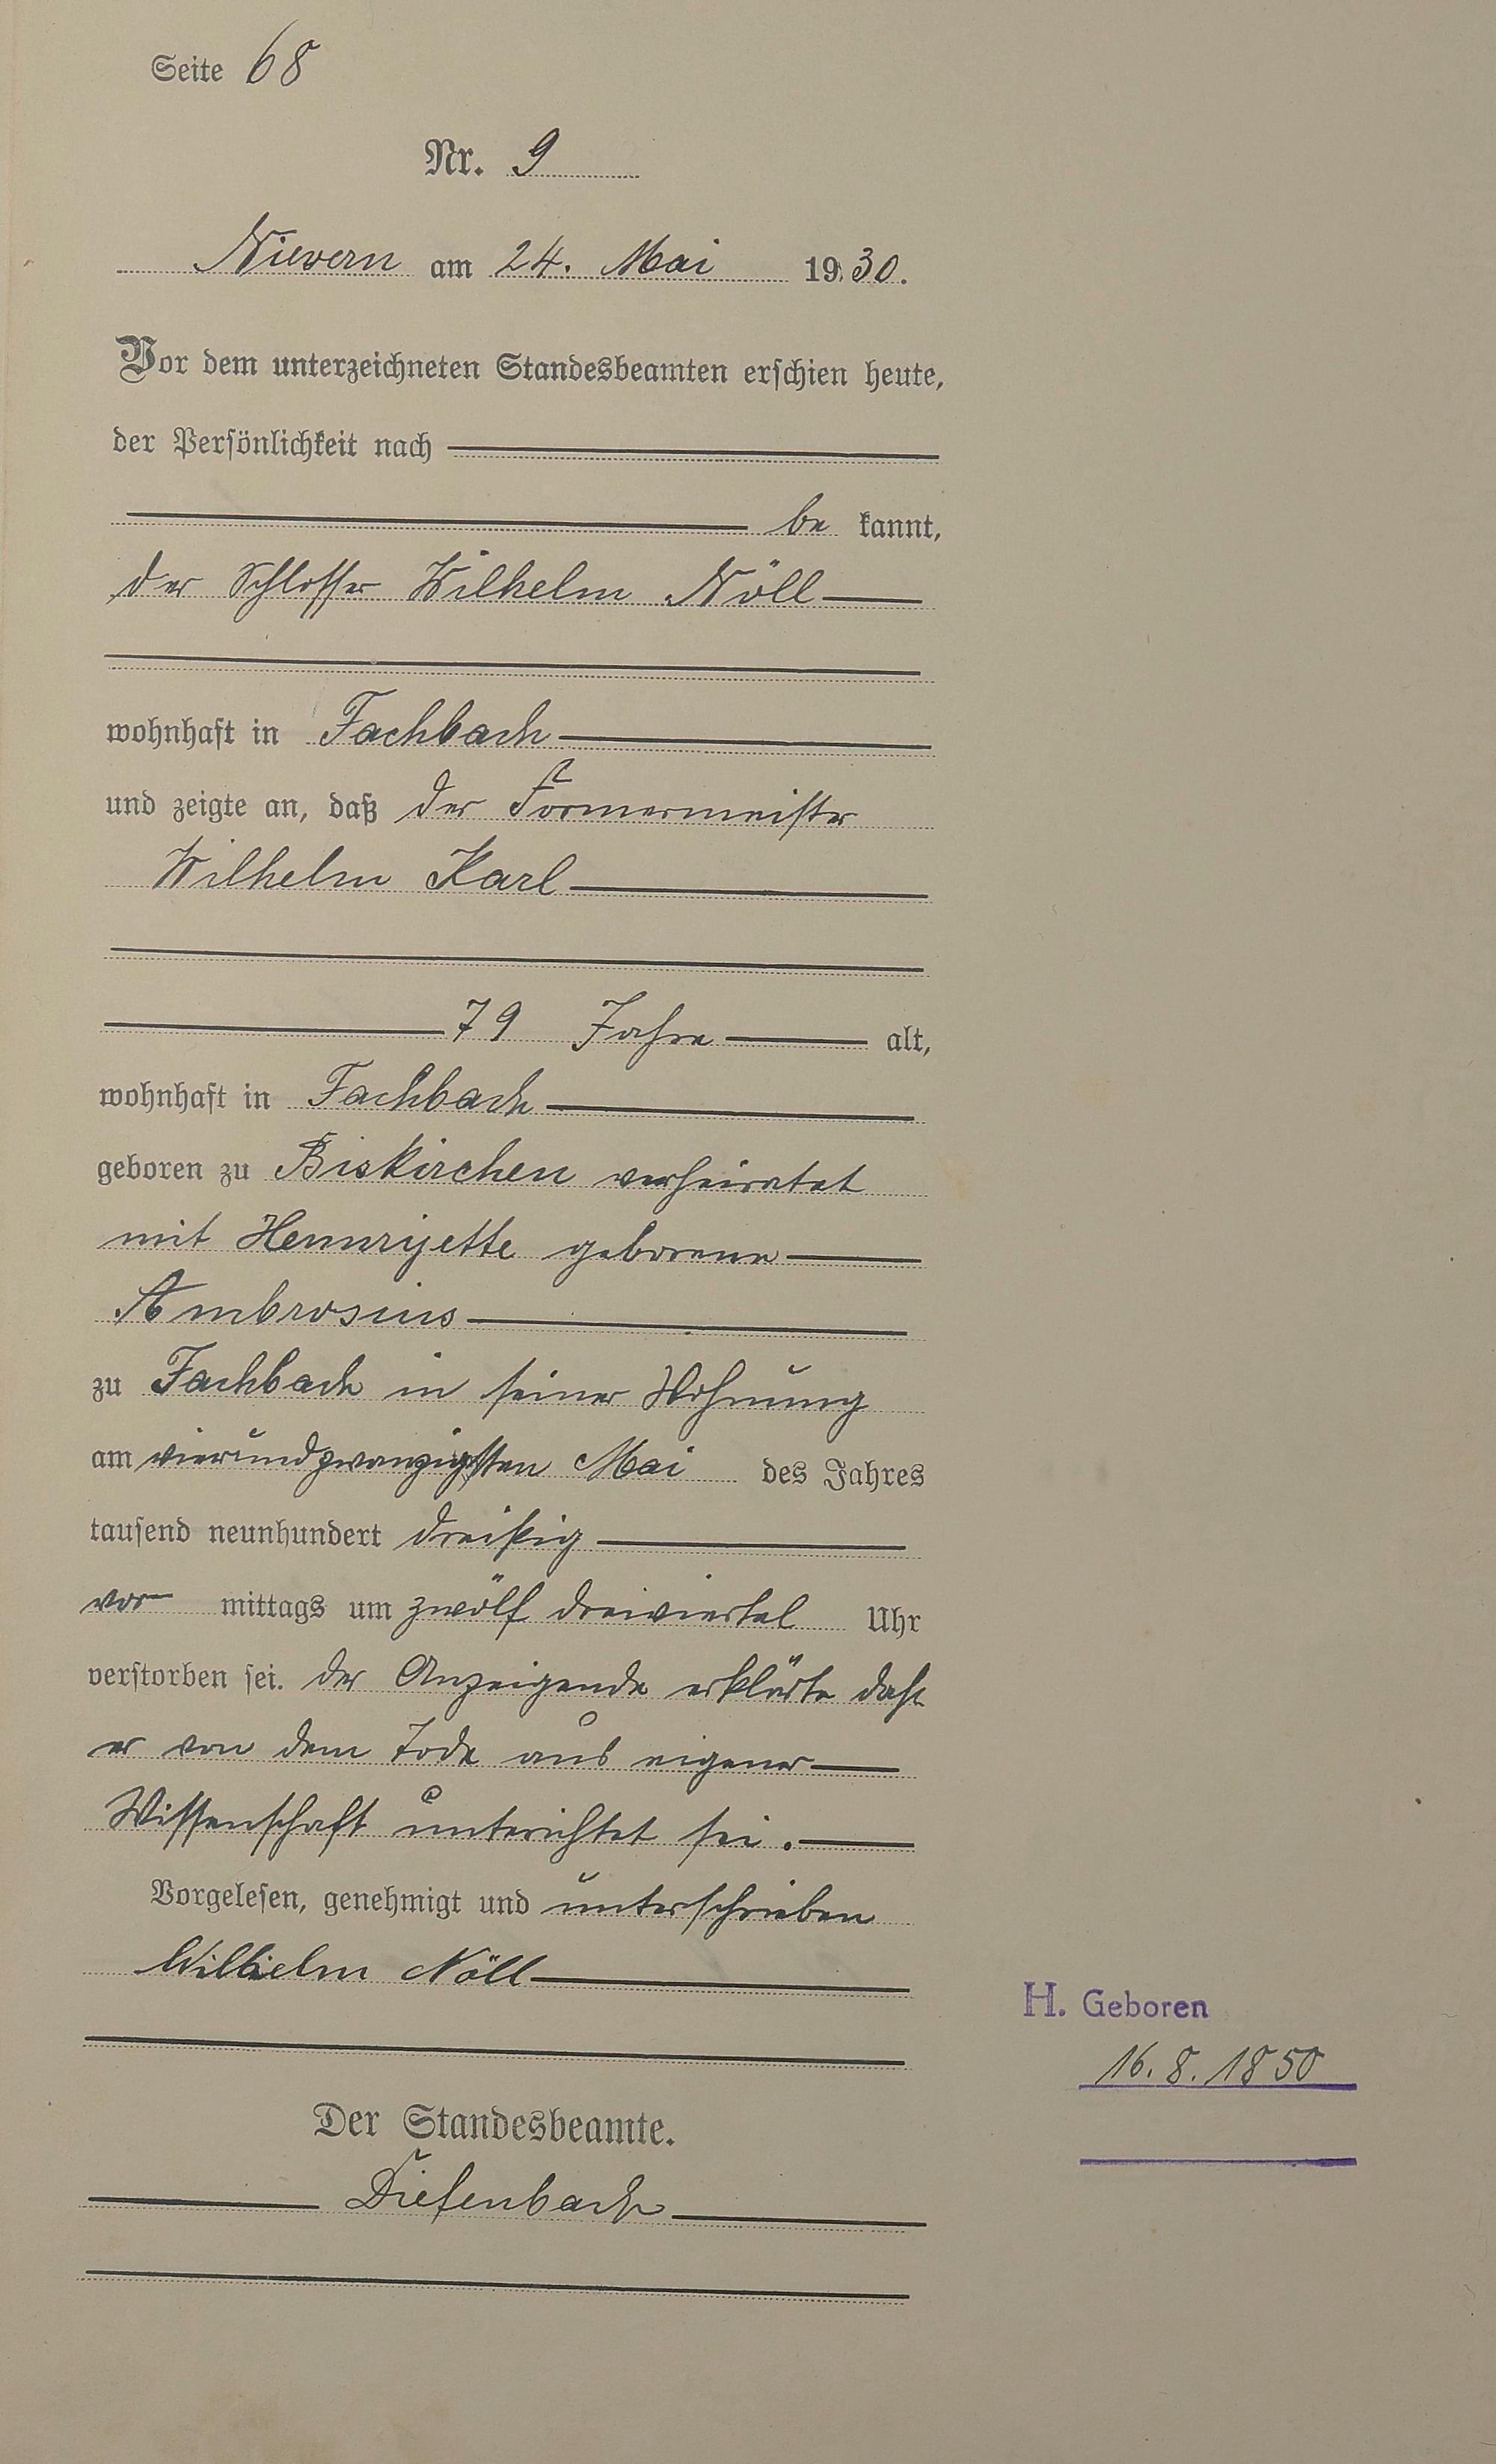 Seite 68
Nr. 9
Nievern am 24. Mai 1930.
Vor dem unterzeichneten Standesbeamten erschien heute,
der Persönlichkeit nach
be kannt,
der Schlosser Wilhelm Nöll
wohnhaft in Fachbach
und zeigte an, daß der Formermeister
Wilhelm Karl
79 Jahre alt,
wohnhaft in Fachbach
geboren zu Biskirchen verheiratet
mit Hennryette geborene
Ambrosius
zu Fachbach in seiner Wohnung
am vierundzwanzigsten Mai des Jahres
tausend neunhundert dreißig
vor mittags um zwölf dreiviertel Uhr
verstorben sei. der Anzeigende erklärte daß
er von dem Tode aus eigener
Wissenschaft unterichtet sei.
Vorgelesen, genehmigt und unterschrieben
Wilhelm Nöll
H. Geboren
16. 8. 1850
Der Standesbeamte.
Diefenbach